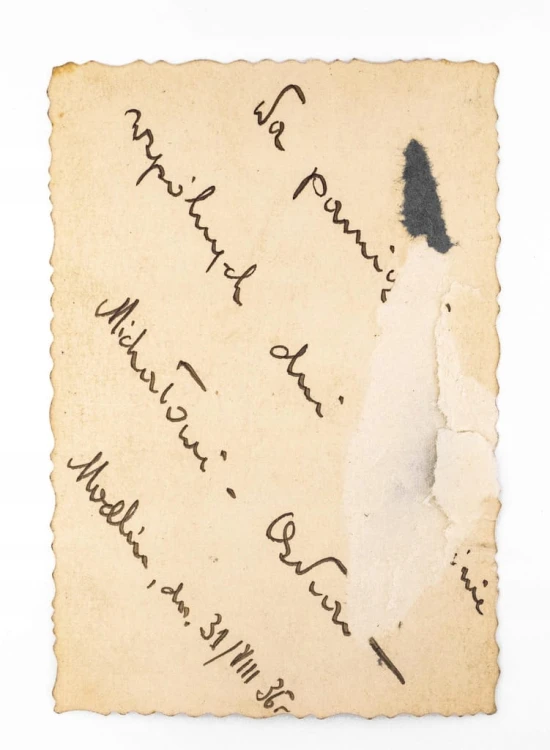 Na pamią
wspólnych dni
Michałowi -
Modlin, dn. 31/VIII 36-